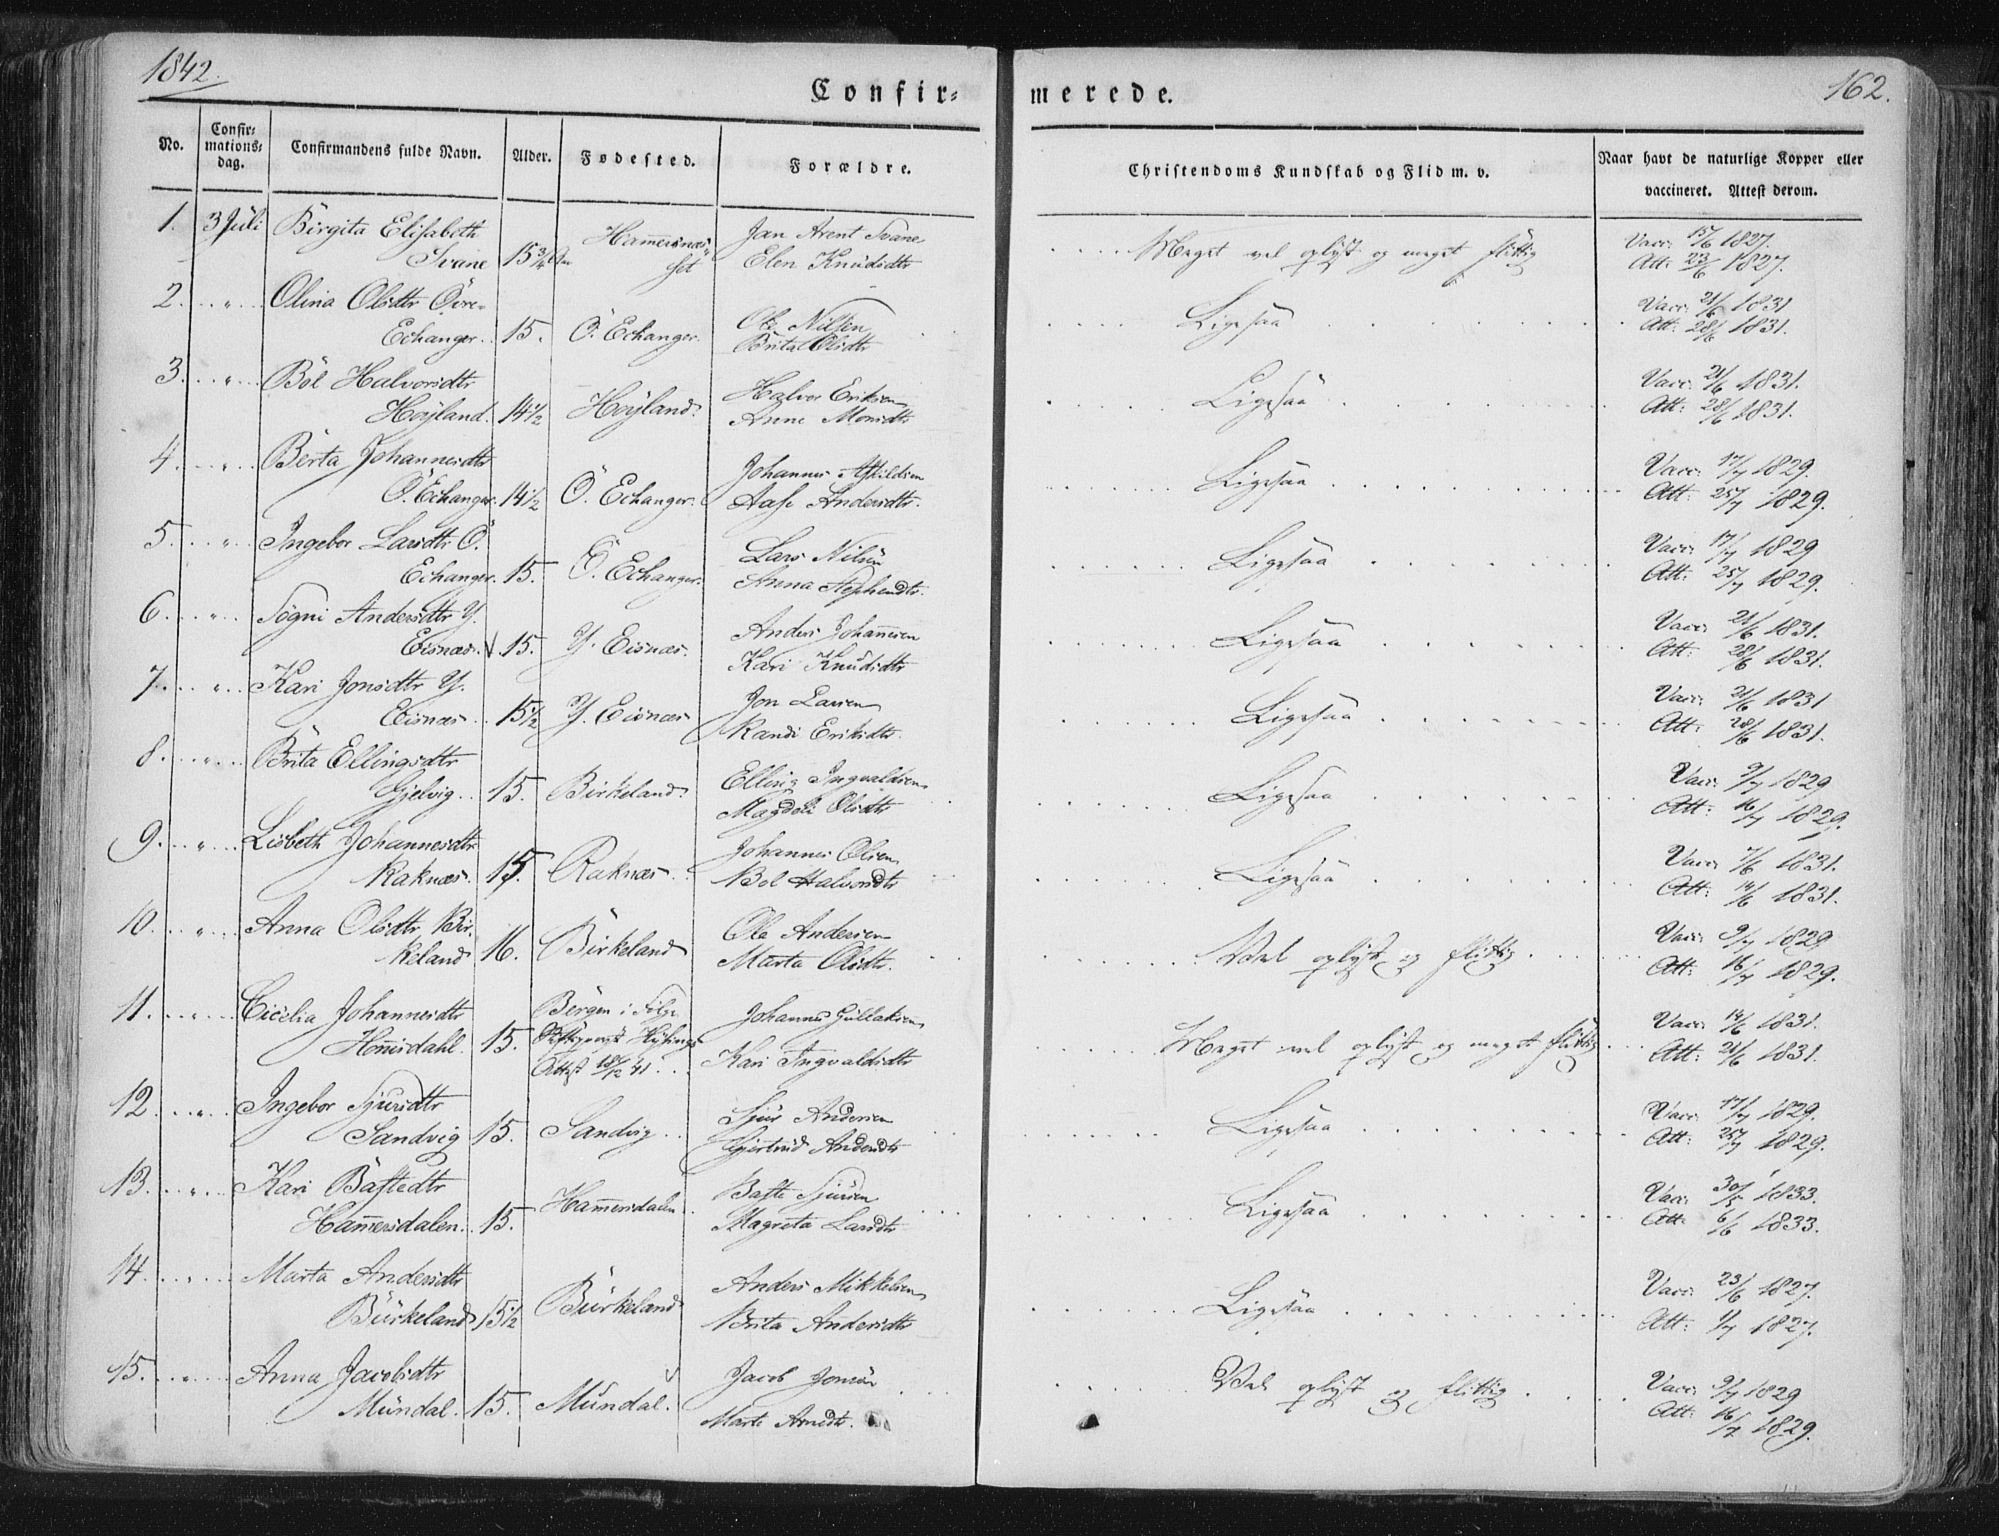 1842.
Confir=
merede.
162.
No.
Confir=
mations=
dag.
Confirmandens fulde Navn.
Alder.
Fødested.
Forældre.
Christendoms Kundskab og Flid m. v.
Naar havt de naturlige Kopper eller
vaccineret. Attest derom.
1. 3 Juli Birgita Elisabeth Jan Arent Svane Vacc: 15/6 1827.
Svane 15 3/4 Hamersnæs Elen Knudsdtr Meget vel oplyst og meget flittig Att: 23/6 1827.
2. " Olina Olsdtr Övre- Ole Nilsen Vacc: 21/6 1831
Echanger. 15. Ö. Echanger. Brita Olsdtr Ligesaa Att: 28/6 1831.
3. " Böl Halvorsdtr Halvor Eriksen Vacc: 21/6 1831.
Höyland. 14 1/2 Höyland. Anne Monsdtr Ligesaa Att: 28/6 1831.
4. " Berta Johannesdtr Johannes Vacc: 17/7 1829.
Ö. Echanger. 14 1/2 Ö. Echanger. Aase Andersdtr. Ligesaa Att: 25/7 1829.
5. " Ingebor Larsdtr Ö. Lars Nilsen Vacc: 17/7 1829
Echanger. 15. Ö. Echanger. Anna Stephensdtr. Ligesaa Att: 25/7 1829.
6. " Sögni Andersdtr Y. Anders Johannesen Vacc: 21/6 1831.
Eisnæs. 15. Y. Eisnæs. Kari Knudsdtr Ligesaa Att: 28/6 1831.
7. " Kari Jonsdtr Y. Jon Larsen Vacc: 21/6 1831
Eisnæs 15 1/2 Y. Eisnæs Randi Eriksdtr. Ligesaa Att: 28/6 1831.
8. " Brita Ellingsdtr Elling Ingvaldsen Vacc: 9/7 1829
Gjelvig. 15. Birkeland. Magdeli Olsdtr Ligesaa Att: 16/7 1829.
9. " Lisbeth Johannesdtr Johannes Olsen Vacc: 7/6 1831.
Raknæs. 15. Raknæs. Böl Halvorsdtr Ligesaa Att: 14/6 1831.
10. " Anna Olsdtr Bir- Ole Andersen Vacc: 9/7 1829
keland 16. Birkeland Marta Olsdtr. Vel oplyst og flittig. Att: 16/7 1829.
11. " Cicelia Johannesdtr Bergen i Følge Johannes Gullaksen Vacc: 14/6 1831.
Homsdahl. 15. Kari Ingvaldsdtr Meget vel oplyst og meget flittig Att: 21/6 1831.
Attest 18/12 41.
12. " Ingebor Sjursdtr Sjur Andersen Vacc: 17/7 1829.
Sandvig 15. Sandvig Gjertrud Andersdtr Ligesaa Att: 25/7 1829.
13. " Kari Bastedtr Baste Sjursen Vacc: 30/5 1833.
Hamersdalen. 15. Hamersdalen Magreta Larsdtr Ligesaa Att: 6/6 1833.
14. " Marta Andersdtr Anders Mikkelsen Vacc: 23/6 1827.
Birkeland 15 1/2 Birkeland Brita Andersdtr Ligesaa Att: 1/7 1827.
15. " Anna Jacobsdtr Jacob Jonsen Vacc: 9/7 1829
Mundal. 15. Mundal. Marte Arnedtr. Vel oplyst og flittig Att: 16/7 1829.